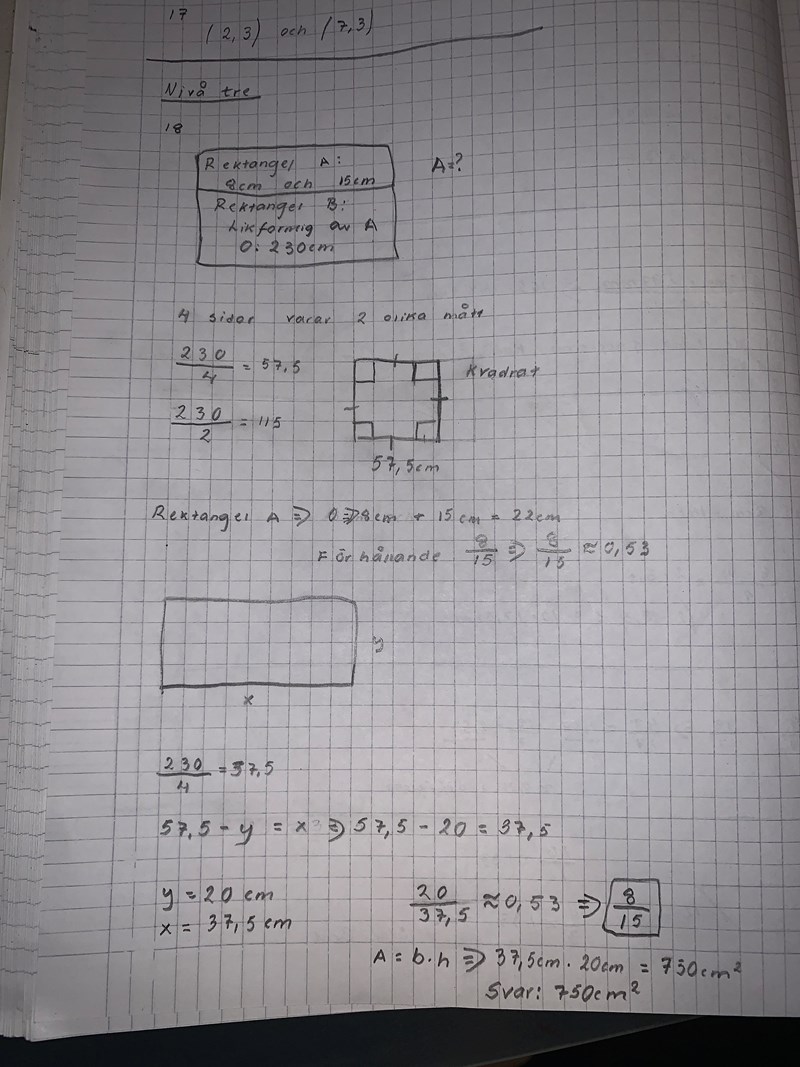 17
(2,3) och (7,3)
Nivå tre
18
Rektangel A:
8cm och 15cm
A=?
Rektangel B:
Likformig av A
O: 230cm
4 sidor varar 2 olika mått
230/4 = 57,5
Kvadrat
230/2 = 115
57,5cm
Rektangel A => O=>8cm + 15cm = 22cm
Förhållande 8/15 => 8/15 ≈ 0,53
y
x
230/4 = 57,5
57,5 - y = x => 57,5 - 20 = 37,5
y = 20 cm
x = 37,5 cm
20/37,5 ≈ 0,53 => 8/15
A = b·h => 37,5cm · 20cm = 750cm²
Svar: 750cm²